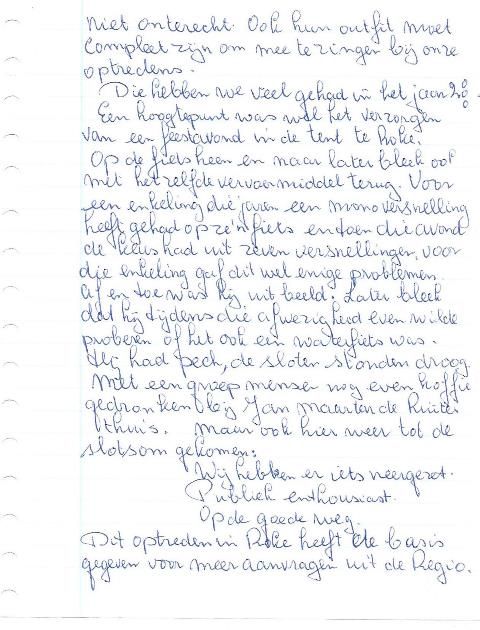 niet onterecht. Ook hun outfit moet
compleet zijn om mee te zingen bij onze
optredens.
Die hebben we veel gehad in het jaar
Een hoogtepunt was wel het verzorgen
van een feestavond in de tent te Poke.
Op de fiets heen en naar later bleek ook
met hetzelfde vervoermiddel terug. Voor
een enkeling die jaren een monoversnelling
heeft gehad op ze'n fiets en toen die avond
de keus had uit zeven versnellingen, voor
die enkeling gaf dit wel enige problemen.
Af en toe was hij uit beeld. Later bleek
dat hij tijdens die afwezigheid even wilde
proberen of het ook een waterfiets was.
Hij had pech, de sloten stonden droog.
Met een groep mensen nog even koffie
gedronken bij Jan Maarten de Ruiter
thuis. Maar ook hier weer tot de
slotsom gekomen:
Wij hebben er iets neergezet.
Publiek enthousiast.
Op de goede weg.
Dit optreden in Poke heeft de basis
gegeven voor meer aanvragen uit de Regio.